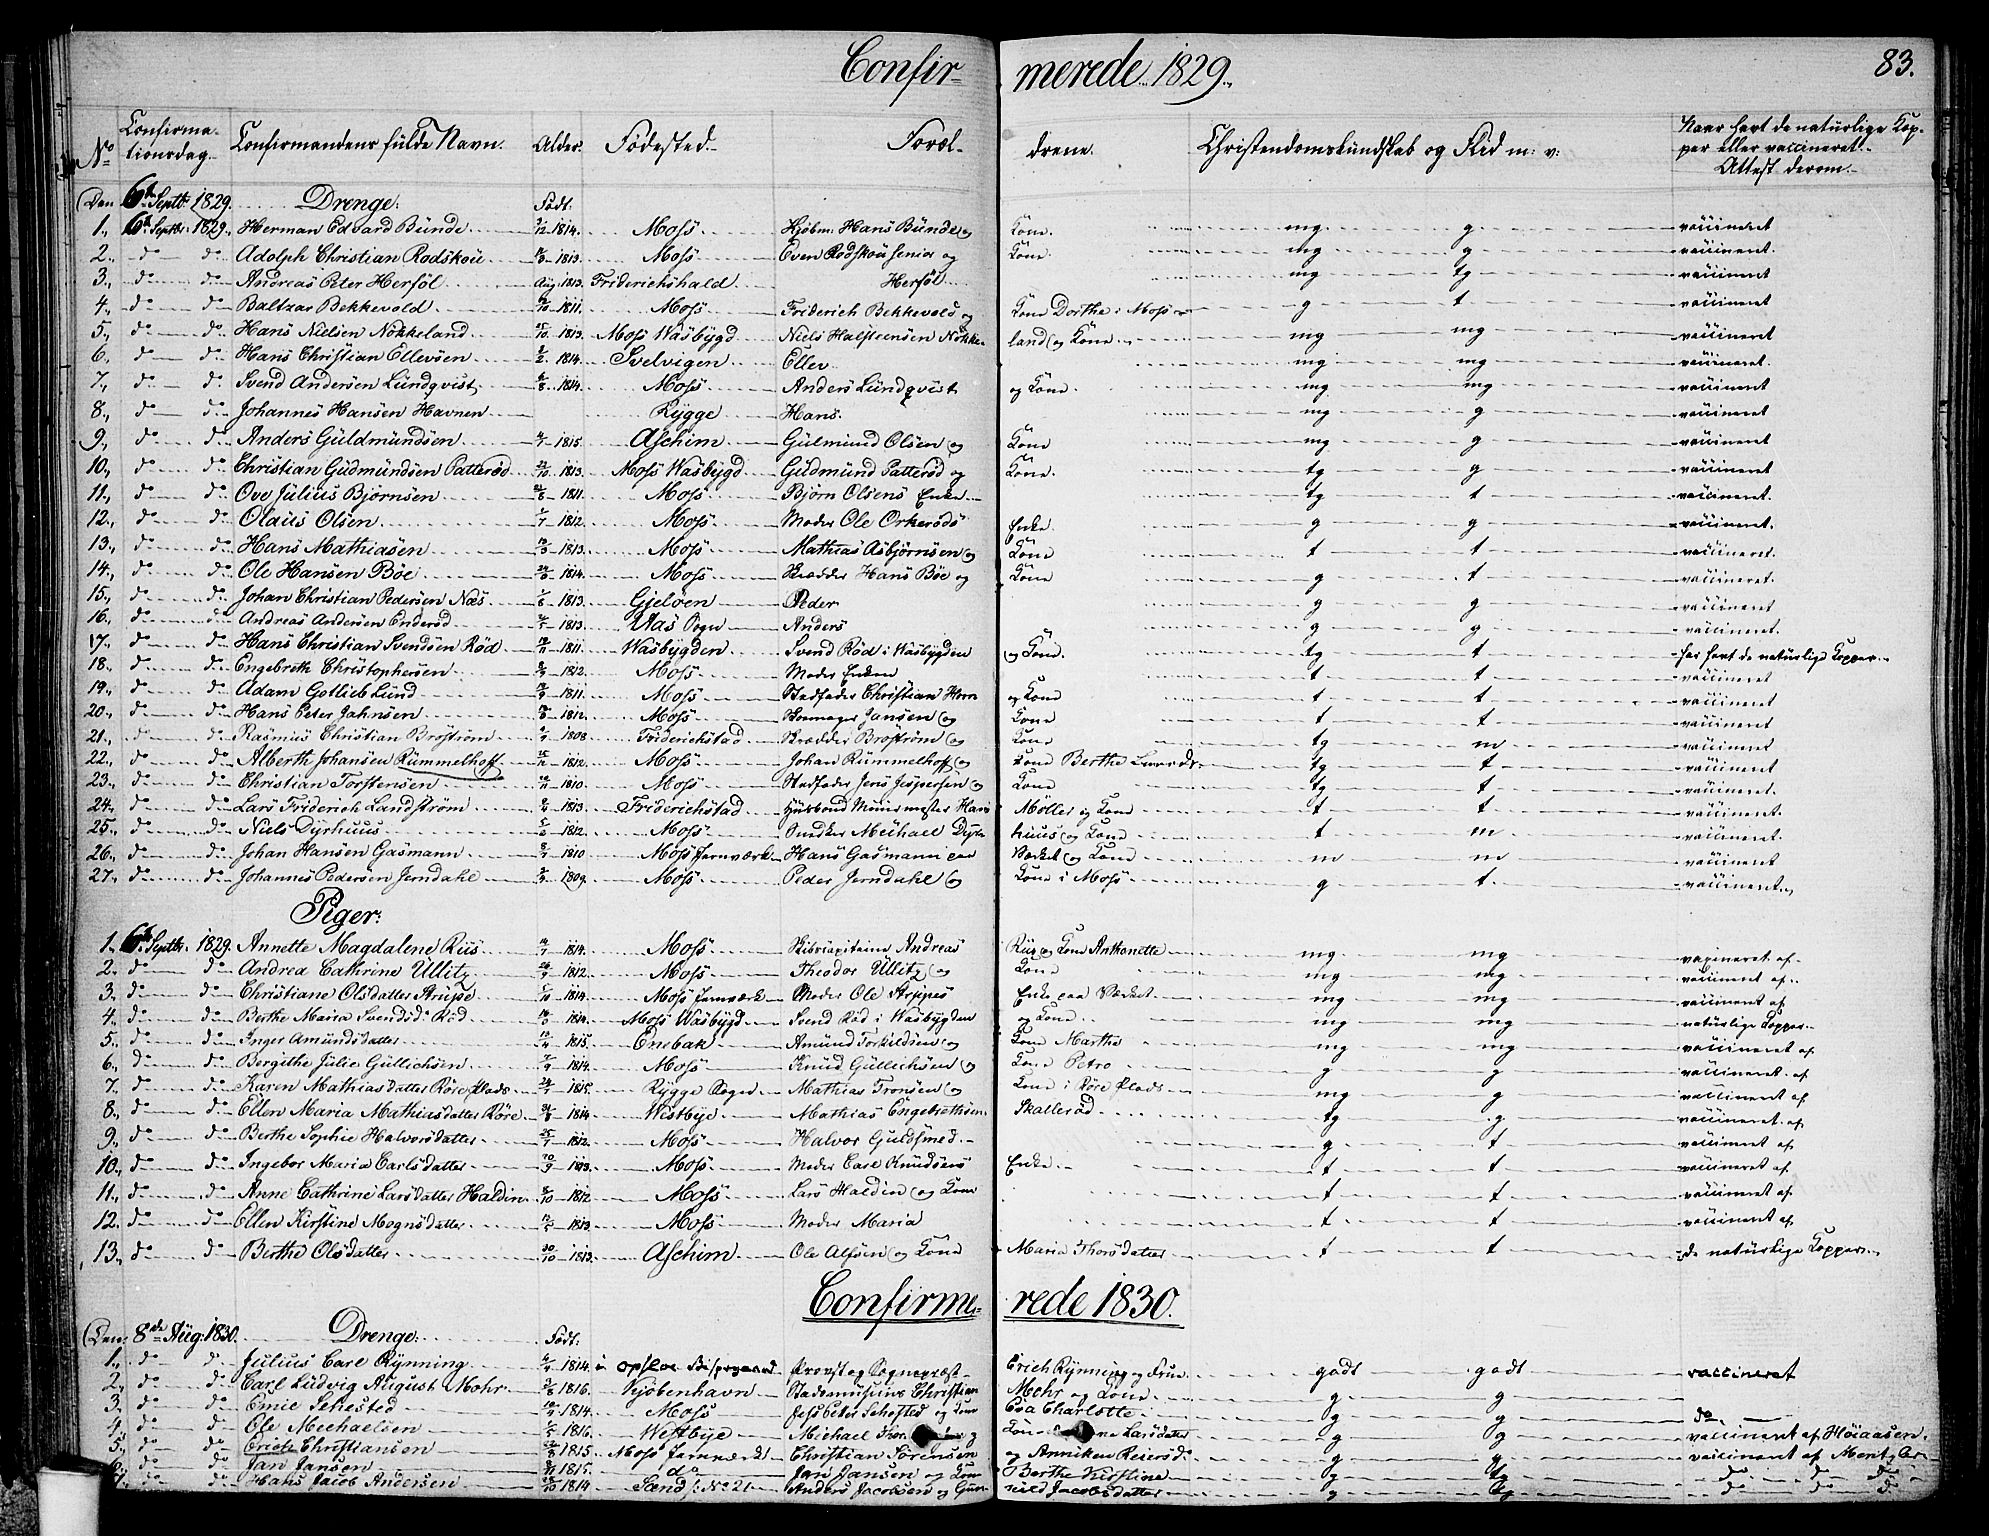 Confir- merede 1829. 83.
No Confirma-tionsdag. Confirmandens fulde Navn. Alder. Fødested Foræl- drene. Christendomskundskab og Flid m: v: Naar havt de naturlige Kop-per eller vaccineret. Attest derom.
Den 6te Septbr. 1829. Drenge: Født.
1. 6te Septbr. 1829. Herman Edvard Bunde 1814. Moss Hans Bunde og Kone. mg g vaccineret
2. do do Adolph Christian Rodskou 1813. Moss Even Rodskou senior og Kone. mg g vaccineret.
3. do do Andreas Peter Hersøl Aug 1813. Friderichshald Hersøl mg tg vaccineret
4. do do Baltzar Bekkevold 1811. Moss Friderich Bekkevold og Kone Dorthe i Moss g t vaccineret
5. do do Hans Nielsen Nokkeland 1813. Moss Wasbygd Niels Halsteensen Nokke- land og Kone mg mg vaccineret
6. do do Hans Christian Ellevsen 1814. Svelvigen Ellev mg mg vaccineret.
7. do do Svend Andersen Lundqvist 1814. Moss Anders Lundqvist og Kone. mg mg vaccineret
8. do do Johannes Hansen Havnen Rygge Hans. mg g vaccineret
9. do do Anders Guldmundsen 1815. Aschim Gulmund Olsen og Kone mg g vaccineret
10. do do Christian Gudmundsen Patterød 1813. Moss Wasbygd Gudmund Patterød og Kone. tg g vaccineret
11. do do Ove Julius Bjørnsen 1811. Moss Bjørn Olsens Enke tg t vaccineret.
12. do do Olaus Olsen 1/7 1812. Moss Moder Ole Orkerøds Enke. g g vaccineret.
13. do do Hans Mathiasen 1813. Moss Mathias Asbjørnsen og Kone t t vaccineret.
14. do do Ole Hansen Bøe 1814. Moss Skrædder Hans Bøe og Kone g t vaccineret.
15. do do Johan Christian Pedersen Næs 1813. Gjeløen Peder g g vaccineret
16. do do Andreas Andersen Enderød 1813. Aas Sogn Anders g g vaccineret.
17. do do Hans Christian Svendsen Rød 1811. Wasbygden Svend Rød i Wasbygden og Kone. tg t har havt de naturlige Kopper
18. do do Engebreth Christophersen 1812. Moss Moder Enken t t vaccineret
19. do do Adam Gotlieb Lund 1811. Moss Stedfader Christian Horn og Kone t t vaccineret
20. do do Hans Peter Jahnsen 1812. Moss Jansen og Kone t t vaccineret
21. do do Rasmus Christian Brostrøm 1808. Friderichstad Skrædder Brostrøm og Kone tg m vaccineret
22. do do Alberth Johansen Rummelhoff 1812. Moss Johan Rummelhoff og Kone Berthe tg t vaccineret
23. do do Christian Torstensen 1810. Moss Stedfader Jens Jespersen og Kone tg t vaccineret.
24. do do Lars Friderich Landstrøm 1813. Friderichstad Huusbond Muurmester Hans Møller og Kone t t vaccineret.
25. do do Niels Dyrhuus 1812. Moss Snedker Michael Dyr- huus og Kone t m vaccineret.
26. do do Johan Hansen Gasmann 1810 Moss Jernværk Hans Gasmann paa Værket og Kone m m vaccineret
27. do do Johannes Pedersen Jerndahl 1809. Moss Peder Jerndahl og Kone i Moss g t vaccineret.
Piger:
1. 6te Septbr. 1829. Annette Magdalene Riis 1814. Moss Skibscapitaine Andreas Riis og Kone Anthonette mg mg vaxineret af
2. do do Andrea Cathrine Ullitz 1812. Moss Theodor Ullitz og Kone mg mg vaccineret af
3. do do Christiane Olsdatter 1814. Moss Jernværk Moder Ole Enke paa Værket mg mg vaccineret af
4. do do Berthe Maria Svendsd. Rød 1814. Moss Wasbygd Svend Rød i Wasbygden og Kone mg mg naturlige Kopper
5. do do Inger Amundsdatter 1815. Enebak Amund Torkildsen og Kone Marthe mg mg vaccineret af
6. do do Bergithe Julie Gullichsen 1814. Moss Knud Gullichsen og Kone Petro g g vaccineret af
7. do do Karen Mathiasdatter Røre Plads 1815. Rygge Sogn Mathias Tronsen og Kone i Røre Plads mg g vaccineret af
8. do do Ellen Maria Mathiasdatter Røre 1814. Westbye Mathias Engebrethsen Skallerød tg g vaccineret af
9. do do Berthe Sophie Halvorsdatter 1812. Moss Halvor Guldsmed g t vaccineret af
10. do do Ingebor Maria Carlsdatter 1813. Moss Moder Carl Knudsens Enke. t t vaccineret af
11. do do Anne Cathrine Larsdatter Haldin 1812. Moss Lars Haldin og Kone t t vaccineret af
12. do do Ellen Kirstine Mognsdatter 1813. Moss Moder Maria t t vaccineret af
13. do do Berthe Olsdatter 1813. Aschim Ole Alfsen og Kone Maria Thorsdatter t t de naturlige Kopper
Confirme- rede 1830.
Den 8de Aug: 1830. Drenge: Født:
1. do do Julius Carl Rynning 1814. i Opsloe Bispegaard Provst og Sognepræst Erich Rynning og Frue godt godt vaccineret
2. do do Carl Ludvig August Mohr 1816. Kjøbenhavn Stadsmusicus Christian Mohr og Kone g g
3. do do Emil Sehested 1814. Moss Jess Peter Sehested og Kone Eva Charlotte g g do
4. do do Ole Michaelsen 1816. Westbye Michael og Kone Larsdatter g g vaccineret af Høiaasen
5. do do Erich Christiansen 1815. Moss Jernværk Christian Sørensen og Anniken Reiersd. g g vaccineret af Mentz
6. do do Jan Jansen 1815. do Jan Jansen og Kone Berthe Kirstine g tg do do do
7. do do Hans Jacob Andersen 1814. Sæed No 21 Anders Jacobsen og Gun- nild Jacobsdatter g tg do do do